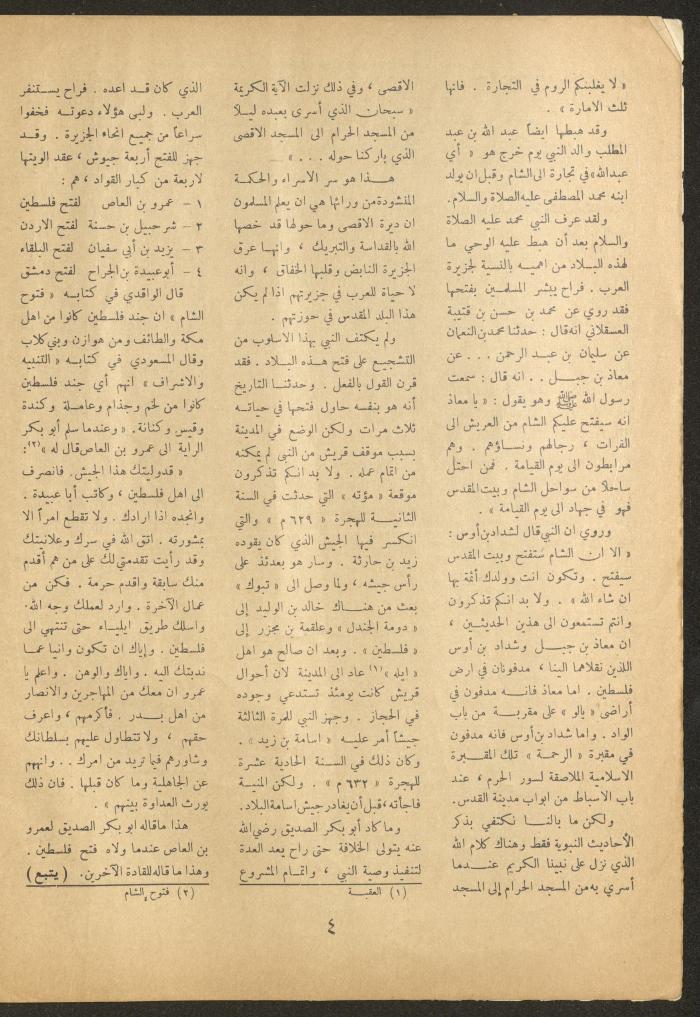 « لا يغلبنكم الروم في التجارة . فانها
ثلث الامارة » .
وقد هبطها ايضاً عبد الله بن عبد
المطلب والد النبي يوم خرج هو « أي
عبدالله» في تجارة الى الشام وقبل ان يولد
ابنه محمد المصطفى عليه الصلاة والسلام.
ولقد عرف النبي محمد عليه الصلاة
والسلام بعد أن هبط عليه الوحي ما
لهذه البلاد من اهمية بالنسبة لجزيرة
العرب . فراح يبشر المسلمين بفتحها
فقد روي عن محمد بن حسن بن قتيبة
العسقلاني انه قال : حدثنا محمد بن النعمان
عن سليمان بن عبد الرحمن . . . عن
معاذ بن جبل . . انه قال : سمعت
رسول الله ﷺ وهو يقول : « يا معاذ
انه سيفتح عليكم الشام من العريش الى
الفرات ، رجالهم ونساؤهم . وهم
مرابطون الى يوم القيامة . فمن احتل
ساحلا من سواحل الشام وبيت المقدس
فهو في جهاد الى يوم القيامة » .
وروي ان النبي قال لشداد بن أوس :
« الا ان الشام ستفتح وبيت المقدس
سيفتح . وتكون انت وولدك أئمة بها
ان شاء الله » . ولا بد انكم تذكرون
وانتم تستمعون الى هذين الحديثين ،
ان معاذ بن جبل وشداد بن أوس
اللذين نقلاهما الينا ، مدفونان في ارض
فلسطين . اما معاذ فانه مدفون في
أراضي « يالو » على مقربة من باب
الواد . واما شداد بن أوس فانه مدفون
في مقبرة « الرحمة » تلك المقبرة
الاسلامية الملاصقة لسور الحرم ، عند
باب الاسباط من ابواب مدينة القدس.
ولكن ما بالنا نكتفي بذكر
الأحاديث النبوية فقط وهناك كلام الله
الذي نزل على نبينا الكريم عندما
أسري به من المسجد الحرام إلى المسجد
الاقصى ، وفي ذلك نزلت الآية الكريمة
« سبحان الذي أسرى بعبده ليلا
من المسجد الحرام الى المسجد الاقصى
الذي باركنا حوله . . . »
هذا هو سر الاسراء والحكمة
المنشودة من ورائها هي ان يعلم المسلمون
ان ديرة الاقصى وما حولها قد خصها
الله بالقداسة والتبريك ، وانها عرق
الجزيرة النابض وقلبها الخفاق ، وانه
لا حياة للعرب في جزيرتهم اذا لم يكن
هذا البلد المقدس في حوزتهم .
ولم يكتف النبي بهذا الاسلوب من
التشجيع على فتح هذه البلاد . فقد
قرن القول بالفعل . وحدثنا التاريخ
أنه هو بنفسه حاول فتحها في حياته
ثلاث مرات ولكن الوضع في المدينة
بسبب موقف قريش من النبي لم يمكنه
من اتمام عمله . ولا بد انكم تذكرون
موقعة « مؤته » التي حدثت في السنة
الثانية للهجرة « ٦٢٩ م » والتي
انكسر فيها الجيش الذي كان يقوده
زيد بن حارثة . وسار هو بعدئذ على
رأس جيشه ، ولما وصل الى « تبوك »
بعث من هناك خالد بن الوليد إلى
« دومة الجندل » وعلقمة بن مجزر إلى
« فلسطين » . وبعد ان صالح هو اهل
« ايله »(١) عاد الى المدينة لان أحوال
قريش كانت يومئذ تستدعي وجوده
في الحجاز . وجهز النبي للمرة الثالثة
جيشاً أمر عليه « اسامة بن زيد » .
وكان ذلك في السنة الحادية عشرة
للهجرة « ٦٣٢ م » . ولكن المنية
فاجأته ، قبل أن يغادر جيش اسامة البلاد.
وما كاد أبو بكر الصديق رضي الله
عنه يتولى الخلافة حتى راح يعد العدة
لتنفيذ وصية النبي ، واتمام المشروع
(١) العقبة
الذي كان قد اعده . فراح يستنفر
العرب . ولبى هؤلاء دعوته فخفوا
سراعاً من جميع انحاء الجزيرة . وقد
جهز للفتح أربعة جيوش ، عقد الويتها
لاربعة من كبار القواد ، هم :
١ - عمرو بن العاص لفتح فلسطين
٢ - شرحبيل بن حسنة لفتح الاردن
٣ - يزيد بن أبي سفيان لفتح البلقاء
٤ - أبو عبيدة بن الجراح لفتح دمشق
قال الواقدي في كتابه « فتوح
الشام » ان جند فلسطين كانوا من اهل
مكة والطائف ومن هوازن وبني كلاب
وقال المسعودي في كتابه « التنبيه
والاشراف » انهم أي جند فلسطين
كانوا من لخم وجذام وعاملة وكندة
وقيس وكنانة. « وعندما سلم أبو بكر
الراية الى عمرو بن العاص قال له »(٢):
« قد وليتك هذا الجيش. فانصرف
الى اهل فلسطين ، وكاتب أبا عبيدة .
وانجده اذا ارادك . ولا تقطع امراً الا
بمشورته . اتق الله في سرك وعلانيتك
وقد رأيت تقدمتي لك على من هم أقدم
منك سابقة واقدم حرمة . فكن من
عمال الآخرة . وارد لعملك وجه الله.
واسلك طريق ايلياء حتى تنتهي الى
فلسطين . وإياك ان تكون وانيا عما
ندبتك اليه . واياك والوهن . واعلم يا
عمرو ان معك من المهاجرين والانصار
من اهل بدر . فأكرمهم ، واعرف
حقهم ، ولا تتطاول عليهم بسلطانك
وشاورهم فيما تريد من امرك . . وانههم
عن الجاهلية وما كان قبلها . فان ذلك
يورث العداوة بينهم » .
هذا ما قاله ابو بكر الصديق لعمرو
بن العاص عندما ولاه فتح فلسطين .
وهذا ما قاله للقادة الآخرين. ( يتبع )
(٢) فتوح الشام
٤